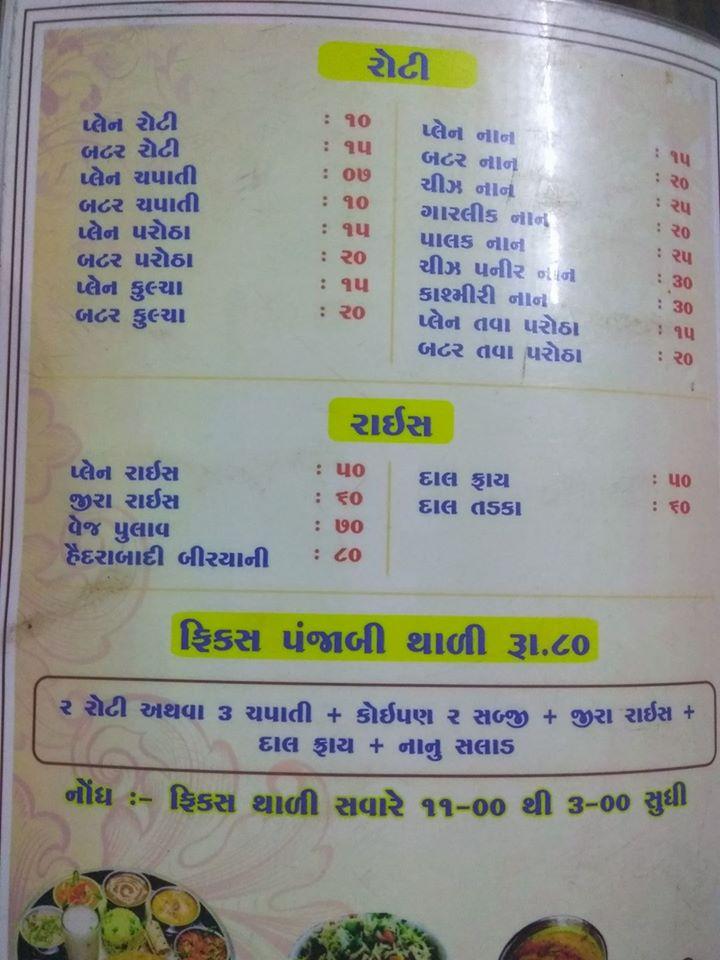 રોટી
પ્લેન રોટી : ૧૦
બટર રોટી : ૧૫
પ્લેન ચપાતી : ૦૭
બટર ચપાતી : ૧૦
પ્લેન પરોઠા : ૧૫
બટર પરોઠા : ૨૦
પ્લેન કુલ્ચા : ૧૫
બટર કુલ્ચા : ૨૦
પ્લેન નાન : ૧૫
બટર નાન : ૨૦
ચીઝ નાન : ૨૫
ગારલીક નાન : ૨૦
પાલક નાન : ૨૫
ચીઝ પનીર નાન : ૩૦
કાશ્મીરી નાન : ૩૦
પ્લેન તવા પરોઠા : ૧૫
બટર તવા પરોઠા : ૨૦
રાઈસ
પ્લેન રાઈસ : ૫૦
જીરા રાઈસ : ૬૦
વેજ પુલાવ : ૭૦
હૈદરાબાદી બીરયાની : ૮૦
દાલ ફ્રાય : ૫૦
દાલ તડકા : ૬૦
ફિકસ પંજાબી થાળી રૂા.૮૦
૨ રોટી અથવા ૩ ચપાતી + કોઈપણ ૨ સબ્જી + જીરા રાઈસ +
દાલ ફ્રાય + નાનુ સલાડ
નોંધ :– ફિકસ થાળી સવારે ૧૧-૦૦ થી ૩-૦૦ સુધી